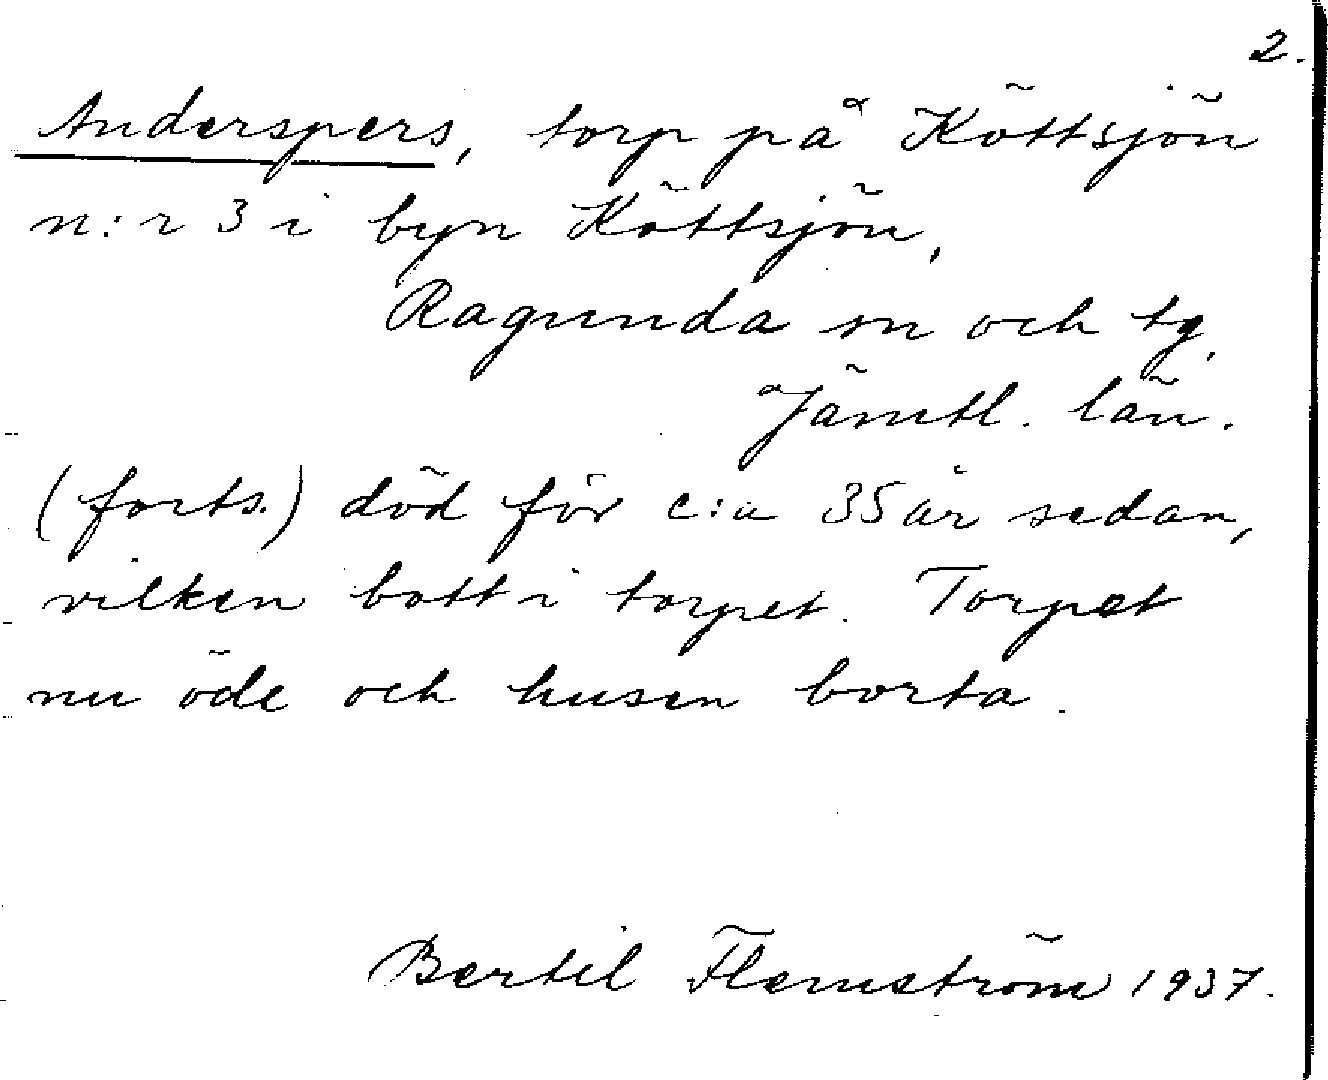 2.
Anderspers, torp på Köttsjön
n:r 3 i byn Köttsjön,
Ragunda sn och tg,
Jämtl. län.
(forts.) död för c:a 35 år sedan,
vilken bott i torpet. Torpet
nu öde och husen borta.
Bertil Flemström 1937.